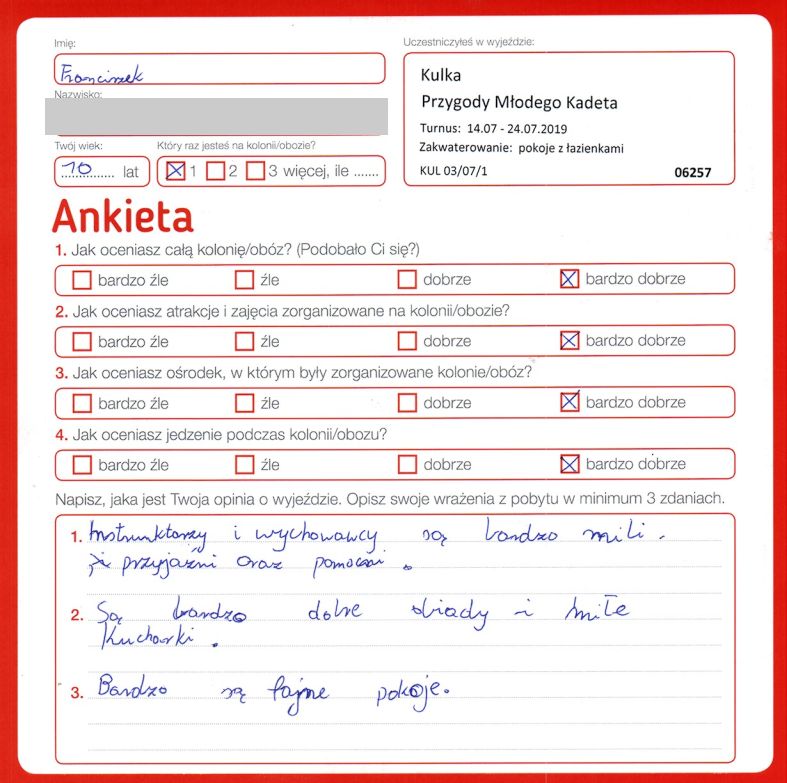 Imię:
Franciszek
Nazwisko:
Twój wiek:
10 lat
Który raz jesteś na kolonii/obozie?
1 2 3 więcej, ile .......
Uczestniczyłeś w wyjeździe:
Kulka
Przygody Młodego Kadeta
Turnus: 14.07 - 24.07.2019
Zakwaterowanie: pokoje z łazienkami
KUL 03/07/1 06257
Ankieta
1. Jak oceniasz całą kolonię/obóz? (Podobało Ci się?)
bardzo źle źle dobrze bardzo dobrze
2. Jak oceniasz atrakcje i zajęcia zorganizowane na kolonii/obozie?
bardzo źle źle dobrze bardzo dobrze
3. Jak oceniasz ośrodek, w którym były zorganizowane kolonie/obóz?
bardzo źle źle dobrze bardzo dobrze
4. Jak oceniasz jedzenie podczas kolonii/obozu?
bardzo źle źle dobrze bardzo dobrze
Napisz, jaka jest Twoja opinia o wyjeździe. Opisz swoje wrażenia z pobytu w minimum 3 zdaniach.
1. Instrunktorzy i wychowawcy są bardzo mili.
przyjaźni oraz pomocni.
2. Są bardzo dobre obiady i miłe
Kucharki.
3. Bardzo są fajne pokoje.